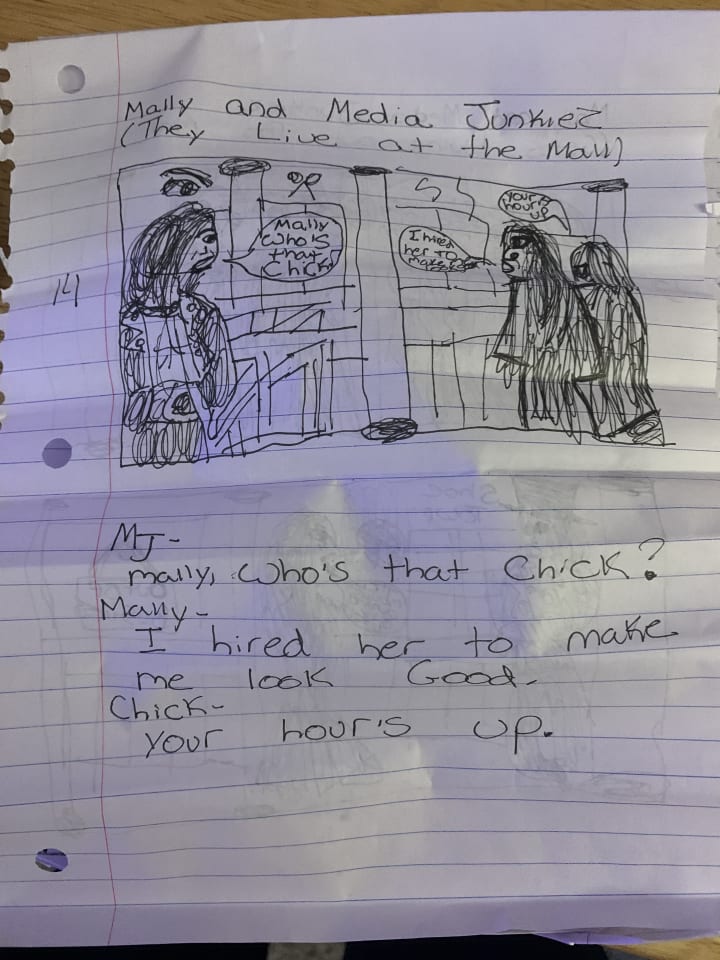 Mally and Media Junkiez
(They Live at the Mall)
14
Mally
Who's
that
Chick?
I hired
her to
Your
hour's
up
MJ-
Mally, Who's that Chick?
Mally-
I hired her to make
me look Good.
Chick-
Your hour's up.